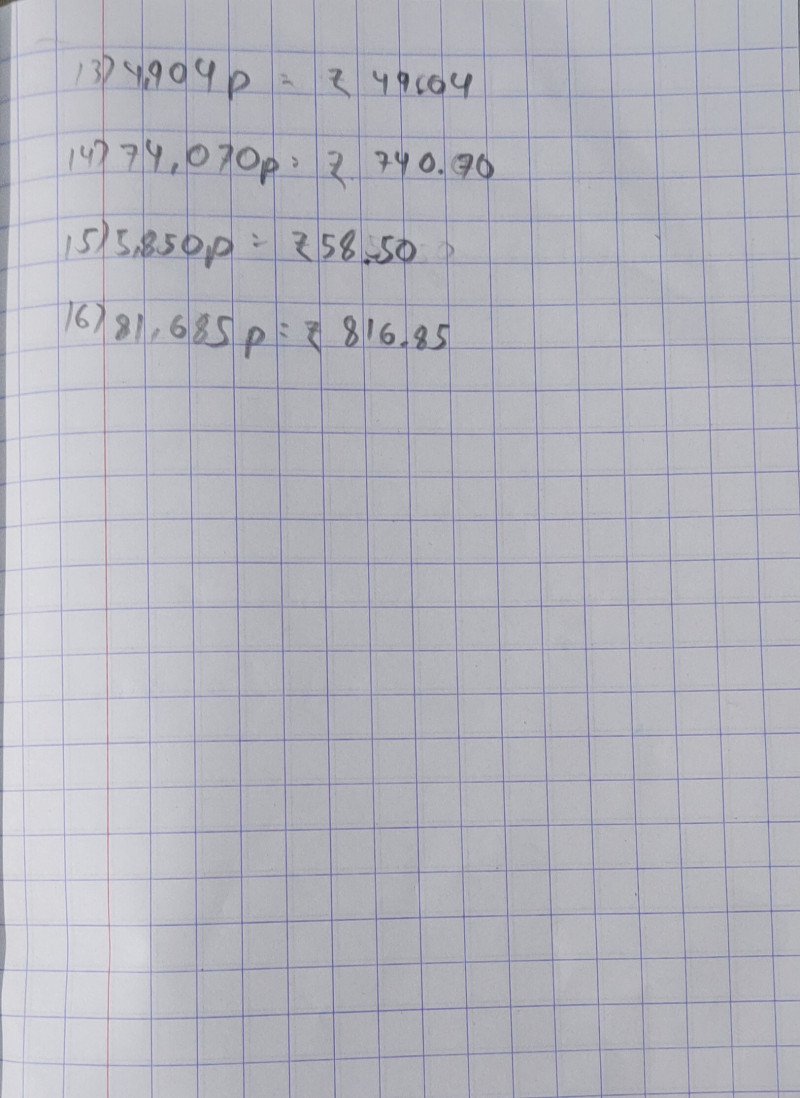 13) 4,904 p = ₹ 49.04
14) 74,070p = ₹ 740.70
15) 5,850p = ₹58.50
16) 81,685 p = ₹ 816.85